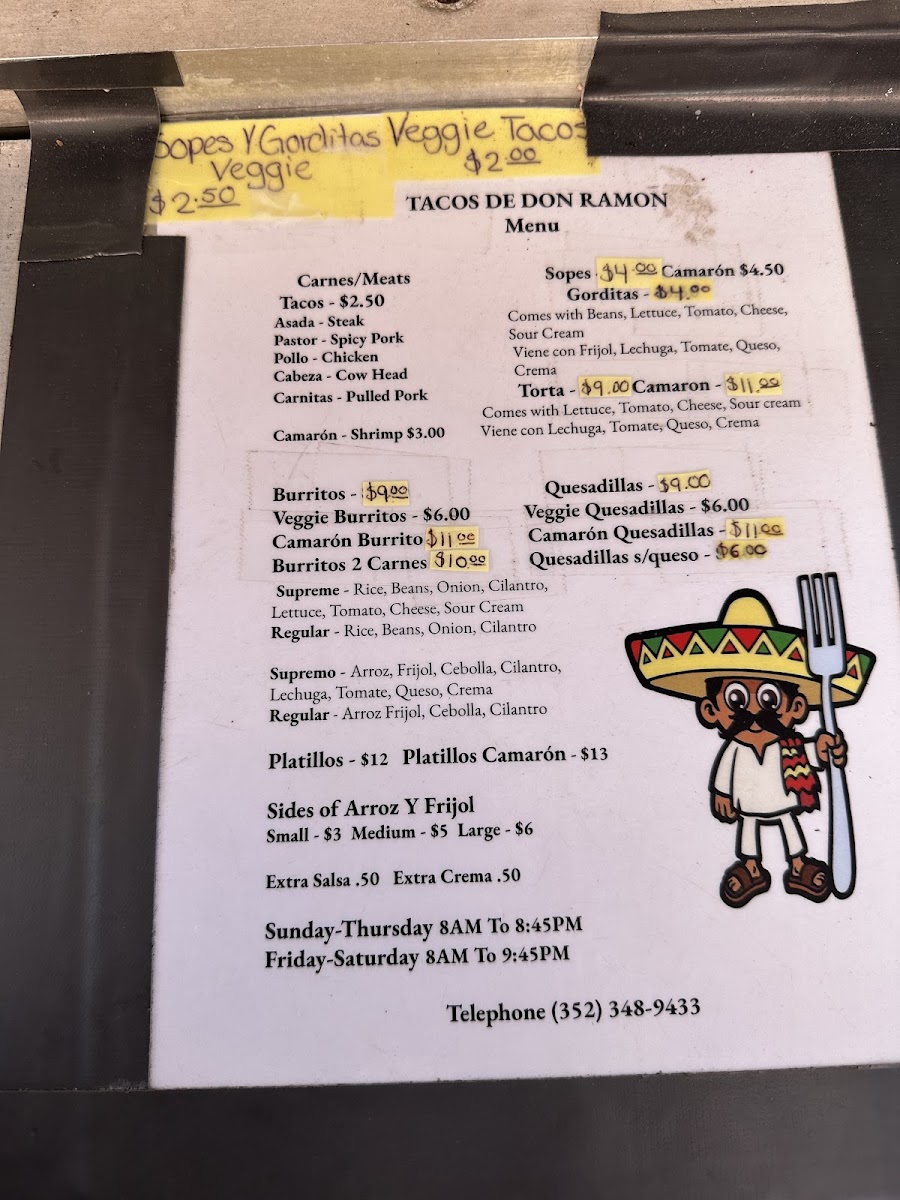 Sopes Y Gorditas
Veggie
$2.50
Veggie Tacos
$2.00
TACOS DE DON RAMON
Menu
Carnes/Meats
Tacos - $2.50
Asada - Steak
Pastor - Spicy Pork
Pollo - Chicken
Cabeza - Cow Head
Carnitas - Pulled Pork
Camarón - Shrimp $3.00
Sopes - $4.00 Camarón $4.50
Gorditas - $4.00
Comes with Beans, Lettuce, Tomato, Cheese,
Sour Cream
Viene con Frijol, Lechuga, Tomate, Queso,
Crema
Torta - $9.00 Camaron - $11.00
Comes with Lettuce, Tomato, Cheese, Sour cream
Viene con Lechuga, Tomate, Queso, Crema
Burritos - $9.00
Veggie Burritos - $6.00
Camarón Burrito $11.00
Burritos 2 Carnes $10.00
Supreme - Rice, Beans, Onion, Cilantro,
Lettuce, Tomato, Cheese, Sour Cream
Regular - Rice, Beans, Onion, Cilantro
Supremo - Arroz, Frijol, Cebolla, Cilantro,
Lechuga, Tomate, Queso, Crema
Regular - Arroz Frijol, Cebolla, Cilantro
Quesadillas - $9.00
Veggie Quesadillas - $6.00
Camarón Quesadillas - $11.00
Quesadillas s/queso - $6.00
Platillos - $12 Platillos Camarón - $13
Sides of Arroz Y Frijol
Small - $3 Medium - $5 Large - $6
Extra Salsa .50 Extra Crema .50
Sunday-Thursday 8AM To 8:45PM
Friday-Saturday 8AM To 9:45PM
Telephone (352) 348-9433